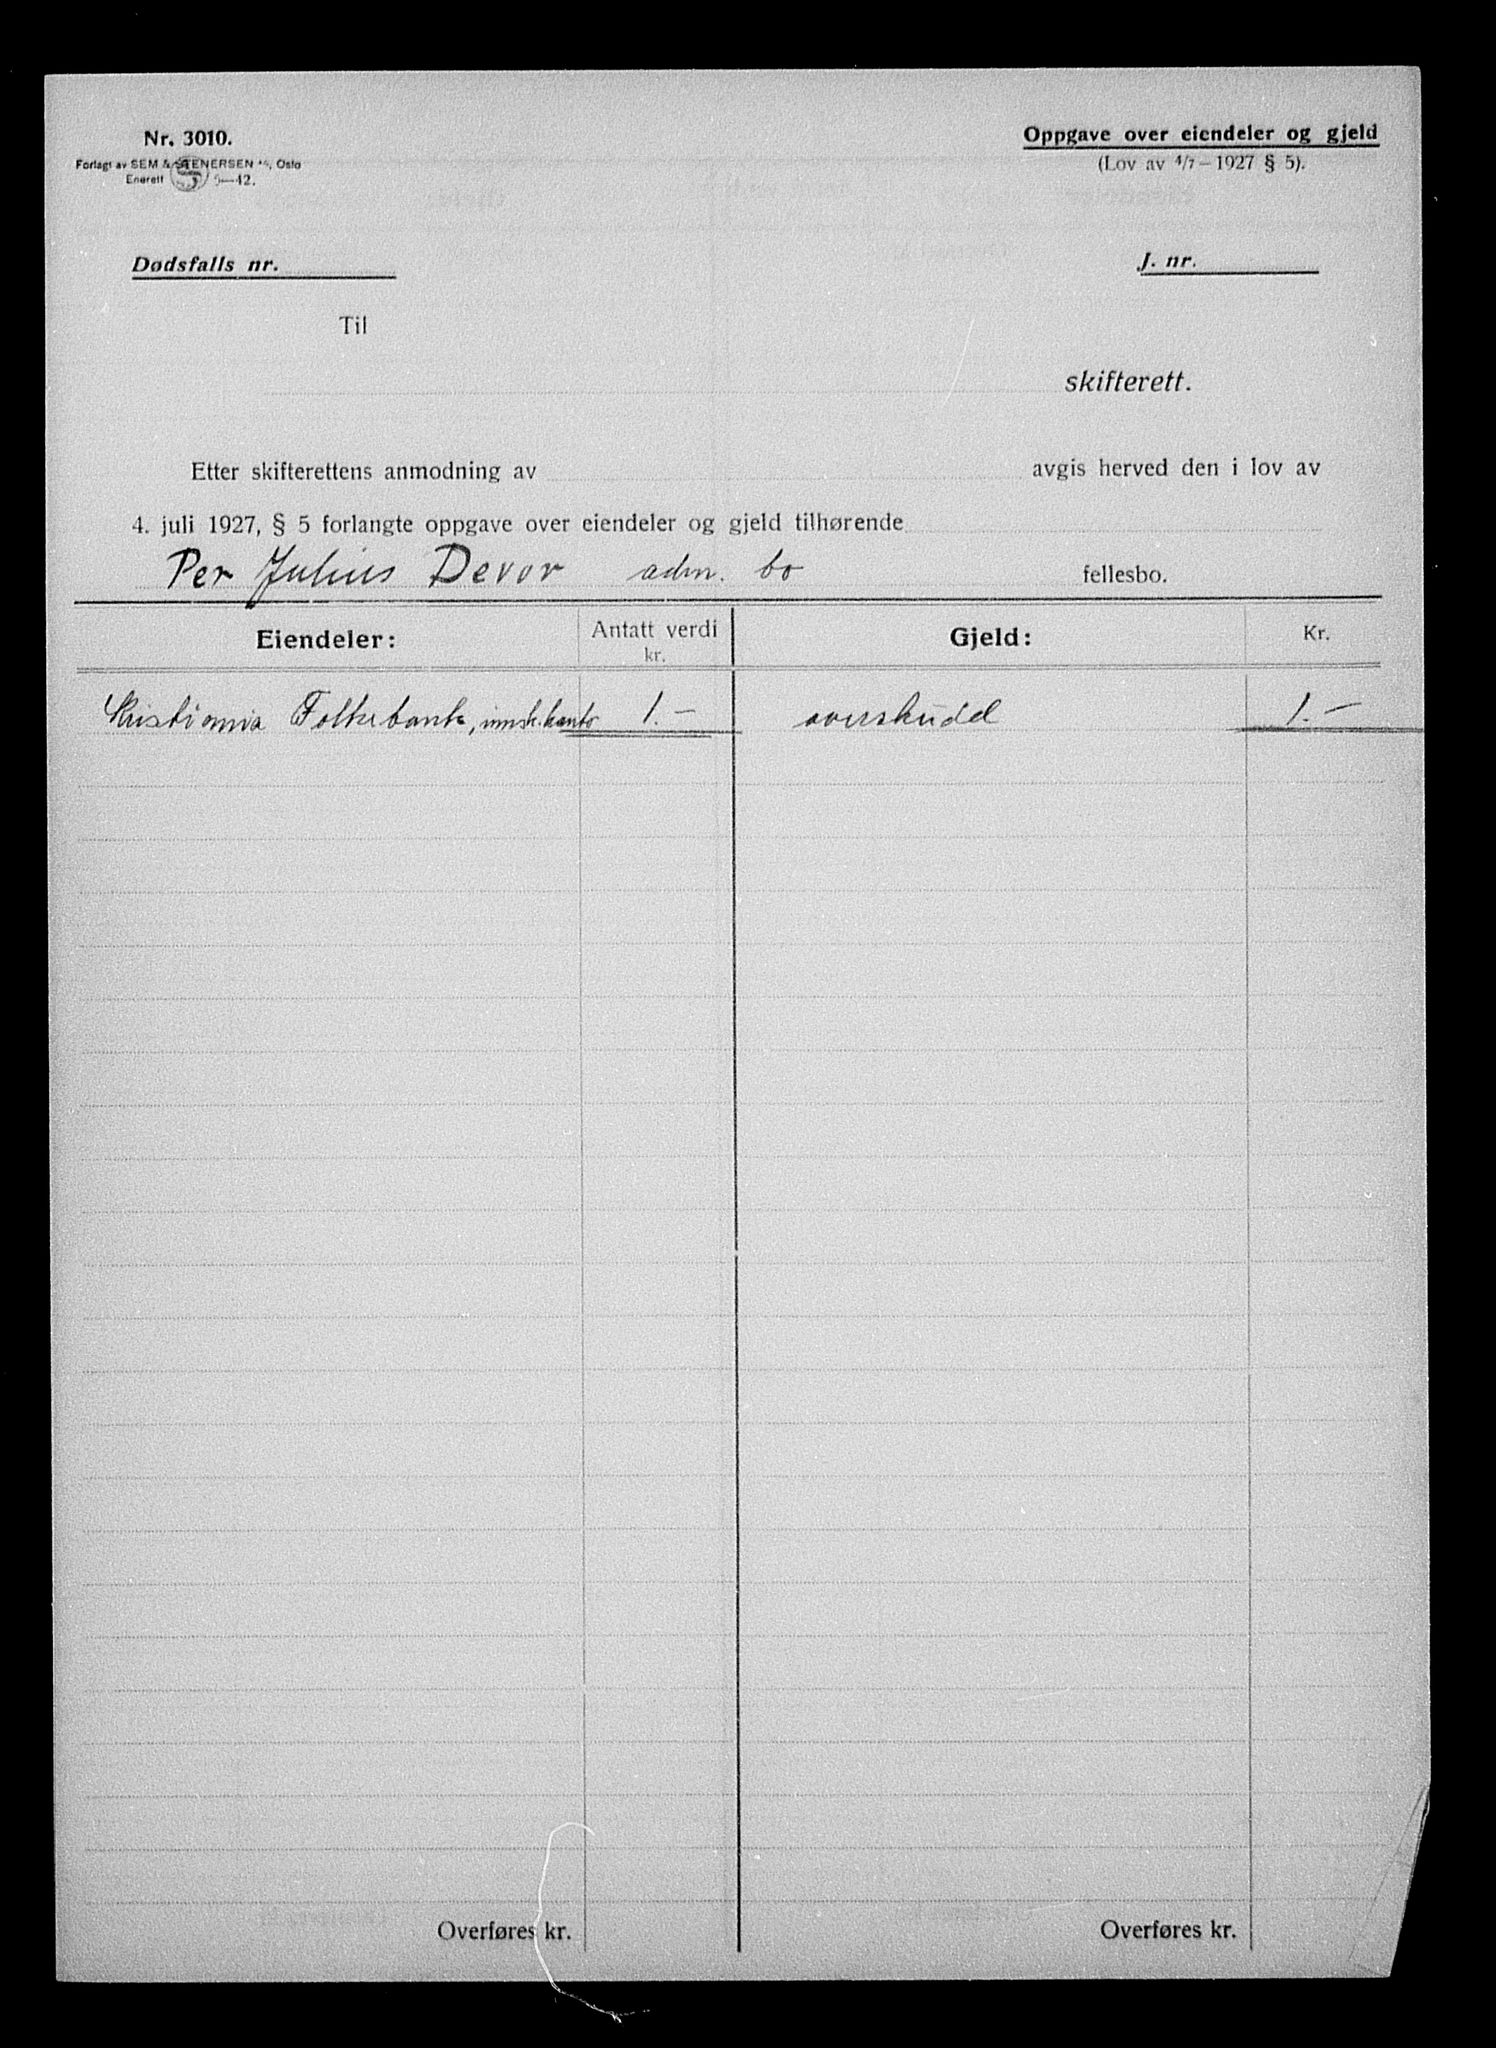 Nr. 3010.
Forlagt av SEM & STENERSEN A/S, Oslo
Enerett 5—42.
Oppgave over eiendeler og gjeld
(Lov av 4/7 – 1927 § 5).
Dødsfalls nr.
J. nr.
Til
skifterett.
Etter skifterettens anmodning av avgis herved den i lov av
4. juli 1927, § 5 forlangte oppgave over eiendeler og gjeld tilhørende
Per Julius Devor adm. bo fellesbo.
Eiendeler: Antatt verdi kr. Gjeld: Kr.
Kristiania Folkebank, innsk.konto 1.— overskudd 1.—
Overføres kr. Overføres kr.